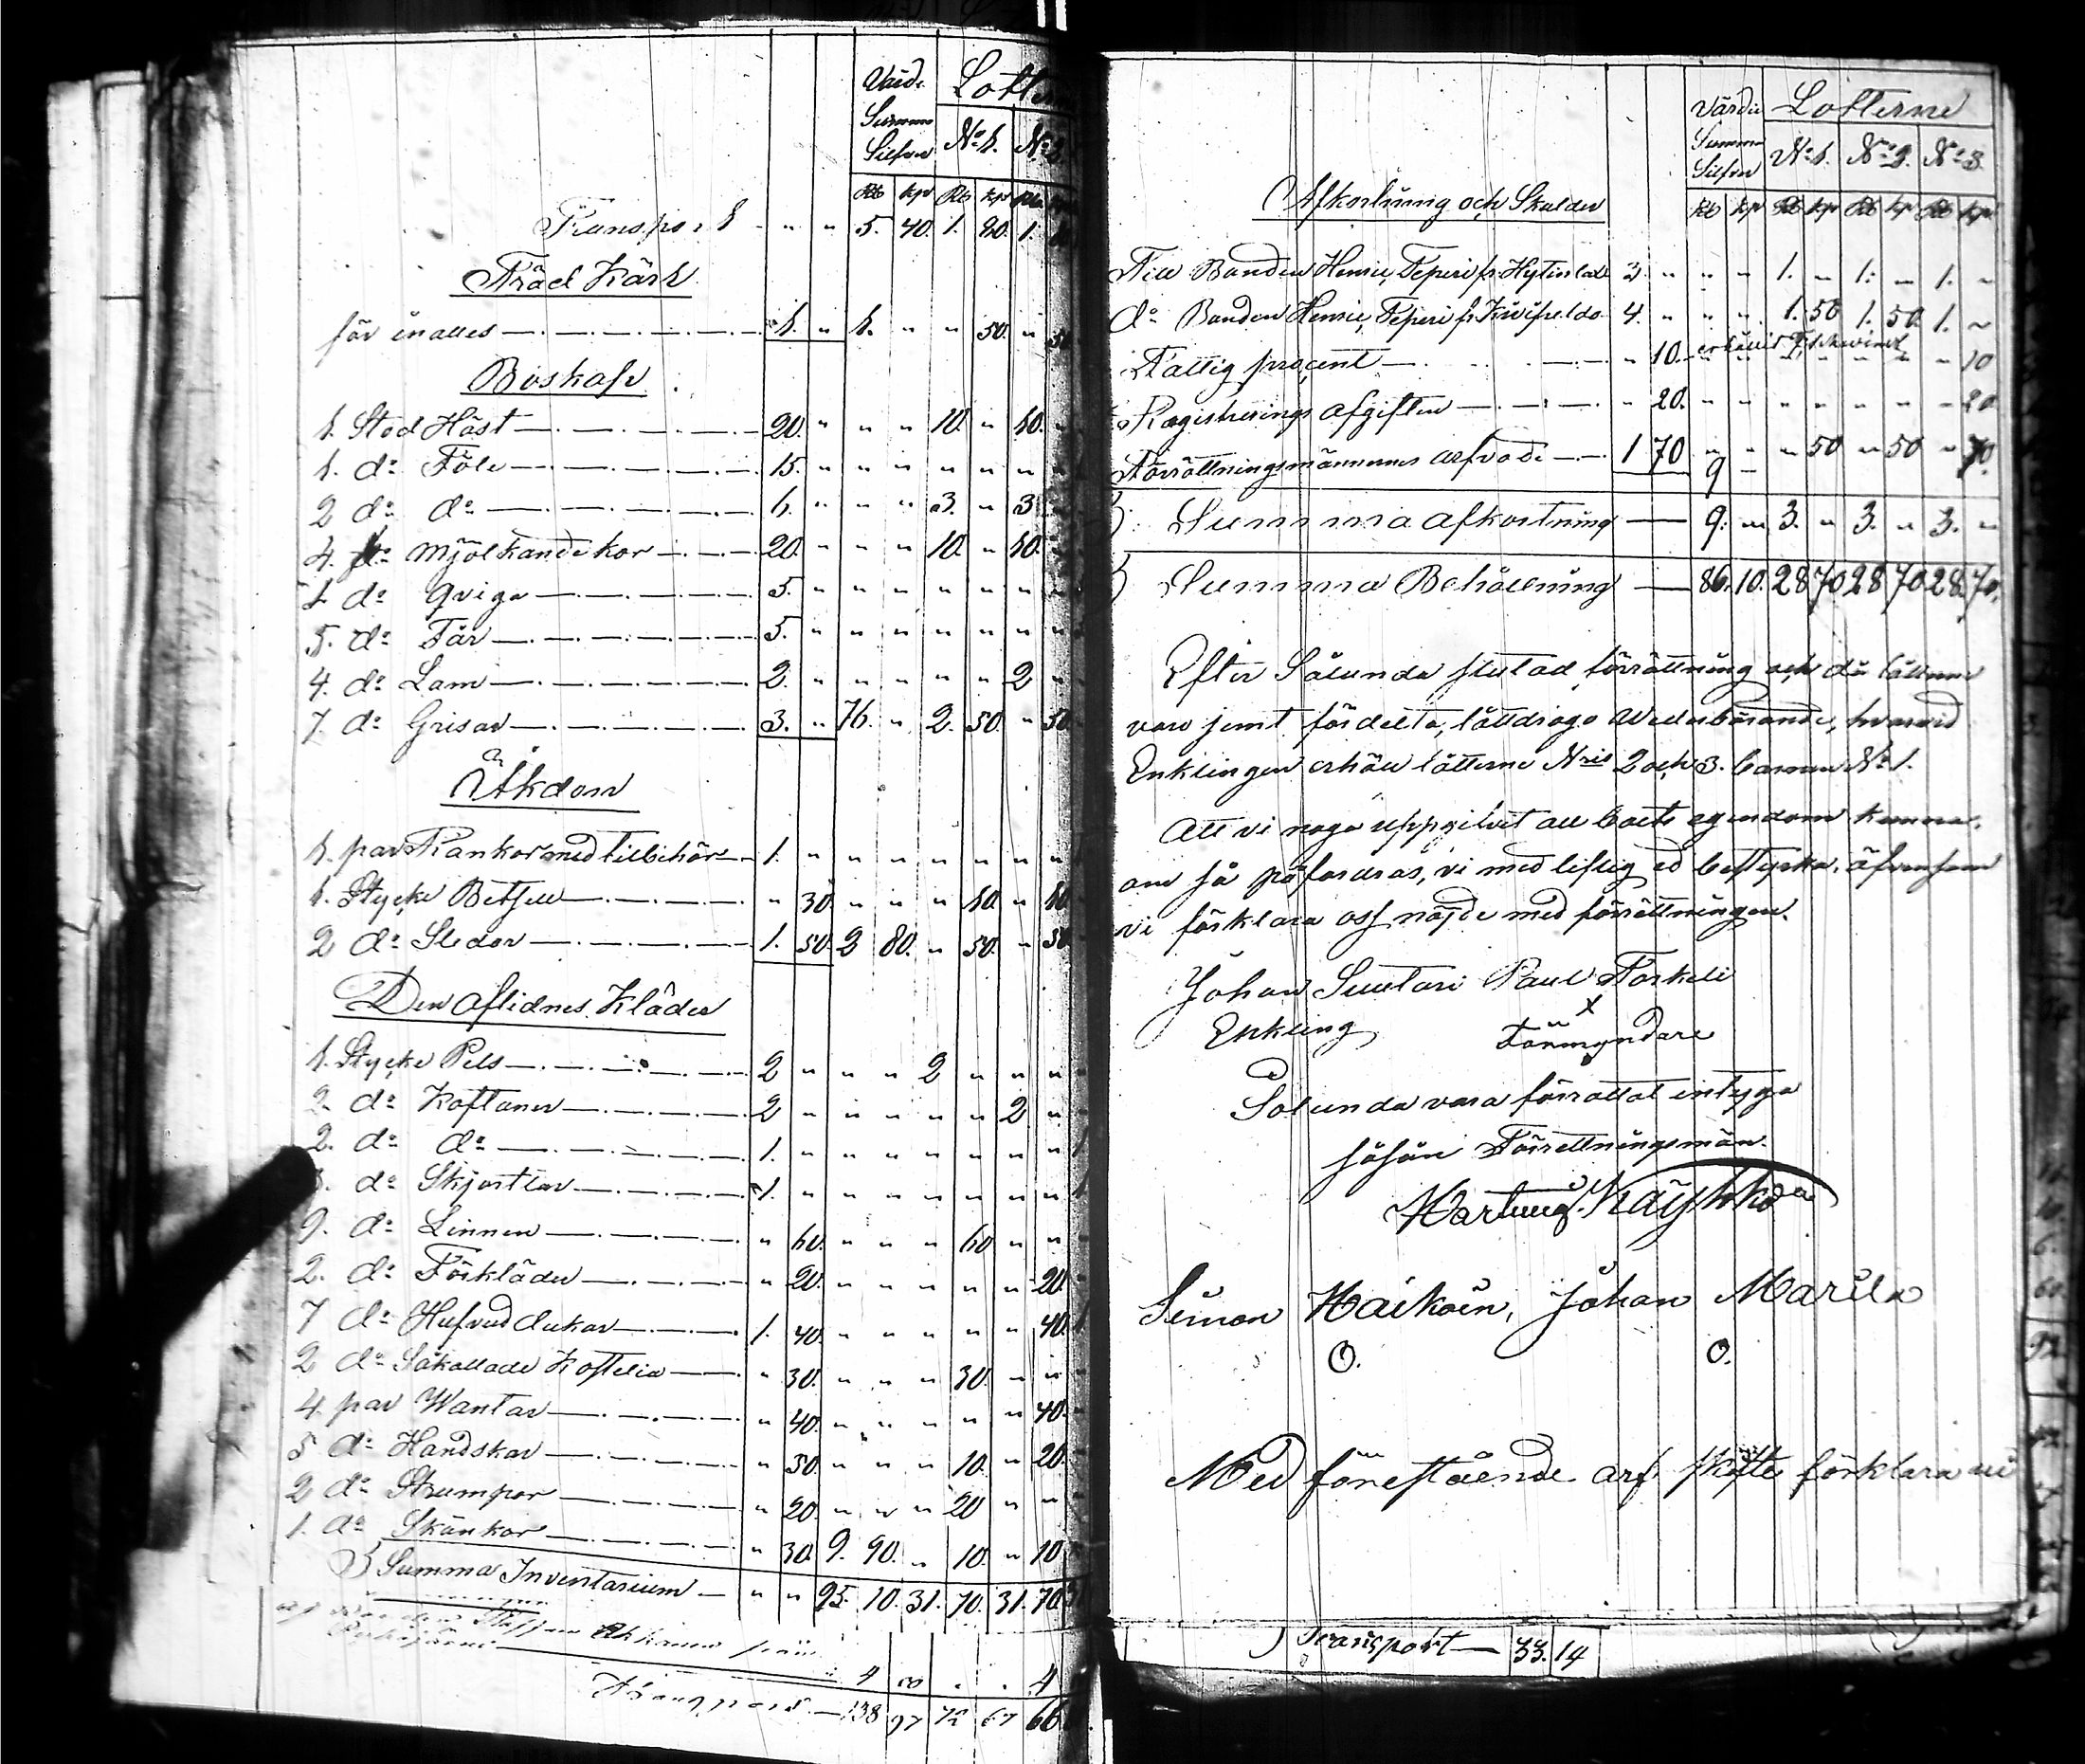 Värde Lotterne
Summa
Silfver No 1. No 2.
Rb kp Rb kp Rb
Transport " " 5. 40. 1. 80. 1.
Träd Kärl
för in alles 1. " 1. " " 50. " 50
Boskap
1. Stod Häst 20. " " " 10. " 10. "
1. do Föle 15. " " " " " " "
2 do do 6. " " " 3. " 3 "
4. do Mjölkande kor 20. " " " 10. " 10. "
1 do Qviga 5. " " " " " " "
5. do Får 5. " " " " " " "
4. do Lam 2. " " " " " 2 "
7. do Grisar 3. " 76. " 2. 50. " 50
Åkdon
1. par Kankor med tillbehör 1. " " " " " " "
1. Stycke Betsell " 30. " " " 10. " 10
2 do Slädor 1. 50. 2 80. " 50. " 50
Den aflidnes Kläder
1. Stycke Pels 2 " " " 2 " " "
2. do Koftaner 2 " " " " " 2 "
2. do do 1. " " " " " " "
do Skjortlar 1. " " " " " " "
9. do Linnen " 60. " " " 60 " "
2. do Förkläder " 20. " " " " " 20.
7 do Hufvuddukar 1. 40. " " " " " 40.
2 do Såkallade Kostelia " 30. " " " 30. " "
4. par Wantar " 40. " " " " " 40.
5 do Handskar " 30. " " " 10. " 20.
2 do Strumpor " 20. " " " 20 " "
1. do Skänkor " 30. 9. 90. " 10. " 10
Summa Inventarium " " 95. 10. 31. 70. 31. 70.
Transport 138 97 72 67 66
Värde Lotterne
Summa
Silfver No 1. No 2. No 3.
Rb kp Rb kp Rb kp Rb kp
Afkortning och Skulder
Till Bonden Henric Teperi fr. 3. " " " 1. " 1. " 1. "
do Bonden Henric Teperi fr. 4. " " " 1. 50 1. 50. 1. "
Fattig procent " 10. " " " " " " " 10
Registrerings afgiften " 20. " " " " " " " 20
Förrättningsmännernes arfvode 1 70 9 " " 50 " 50 " 70.
Summa afkortning 9. " 3. " 3. " 3. "
Summa Behållning 86. 10. 28 70 28 70 28. 70.
Efter Sålunda slutad förrättning och då lotterne
voro jemt fördelta, lottdrogo Wederbörande, hvarvid
Enklingen erhöll lotterne Nris 2 och 3. barnen No 1.
Att vi noga uppgifvit all boets egendom kunna,
om så påfordras, vi med liflig ed bestyrka, äfvensom
vi förklara oss nöjde med förrättningen.
Johan Suutari Paul Torkeli
X
Enkling Förmyndare
Sålunda vara förrättat intyga
såsom Förrettningsmän.
Simon Haikoin, Johan Marila
O. O.
Med förestående arf skifte förklara vi
Transport 33. 14